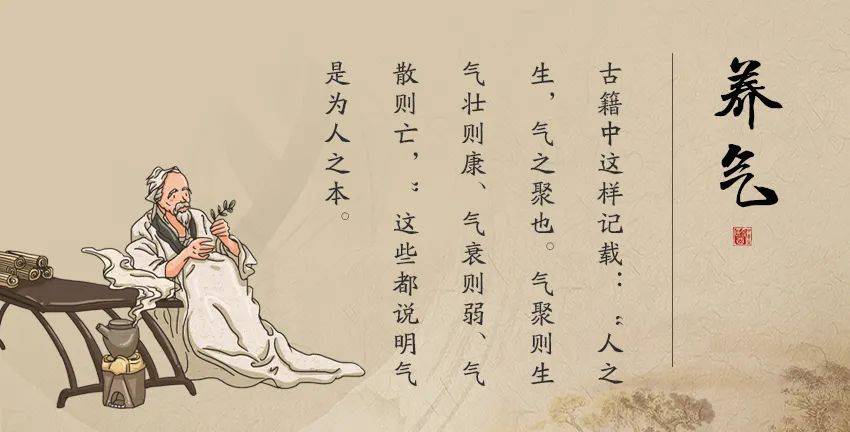 养气
古籍中这样记载：“人之
生，气之聚也。气聚则生
气壮则康、气衰则弱、气
散则亡，”这些都说明气
是为人之本。